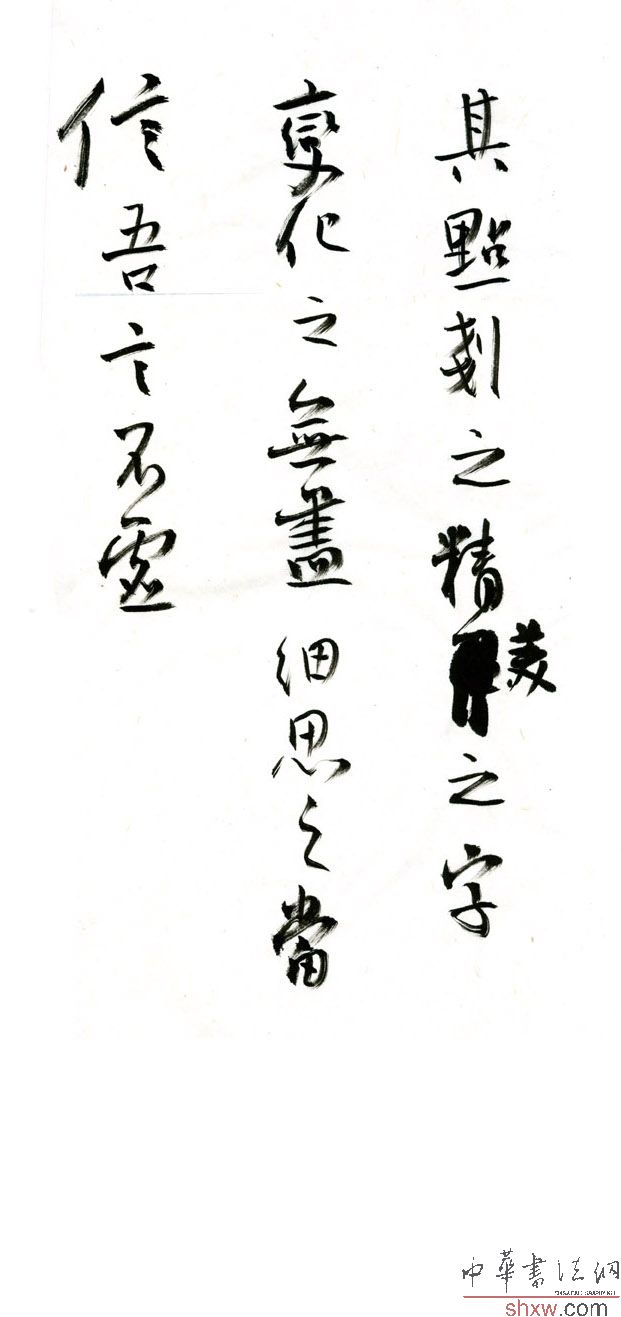 其點剗之精美之字
變化之無盡細思之當
信吾言不虛
中華書法網
shxw.com